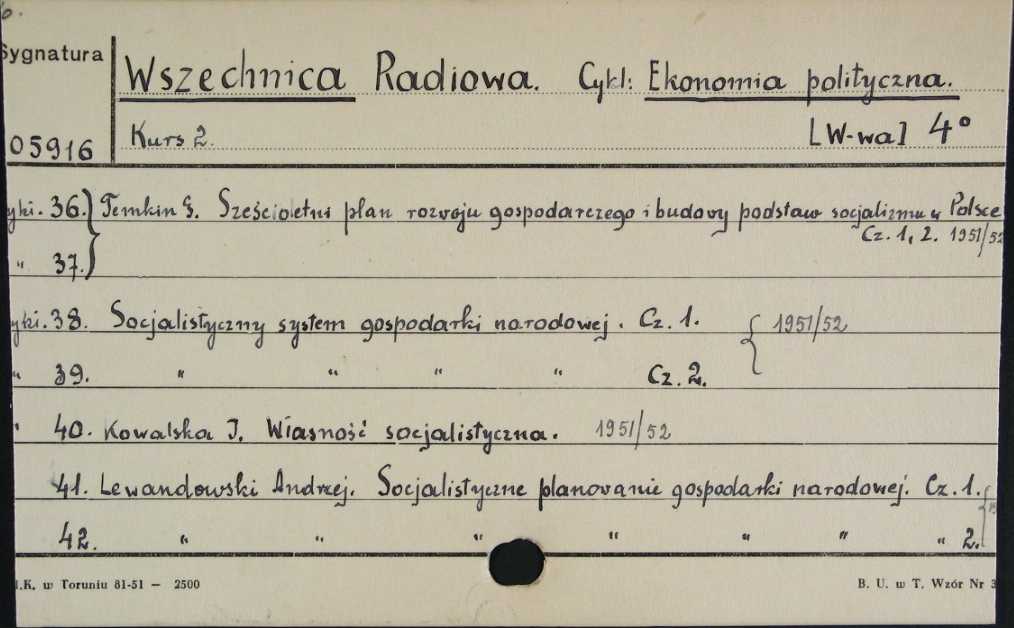 6.
Sygnatura
Wszechnica Radiowa. Cykl: Ekonomia polityczna.
05916 Kurs 2. [W-wa] 4°
yki. 36. Temkin G. Sześcioletni plan rozwoju gospodarczego i budowy podstaw socjalizmu w Polsce
Cz. 1, 2. 1951/52
" 37.
yki. 38. Socjalistyczny system gospodarki narodowej. Cz. 1. 1951/52
" 39. " " " " Cz. 2.
" 40. Kowalska J. Własność socjalistyczna. 1951/52
41. Lewandowski Andrzej. Socjalistyczne planowanie gospodarki narodowej. Cz. 1.
42. " " " " " " " 2.
I.K. w Toruniu 81-51 — 2500 B. U. w T. Wzór Nr 3